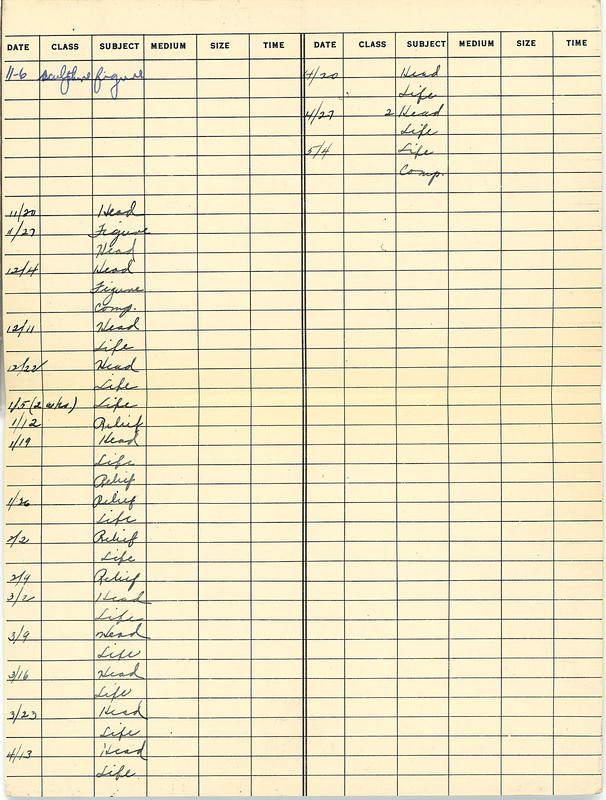 DATE CLASS SUBJECT MEDIUM SIZE TIME DATE CLASS SUBJECT MEDIUM SIZE TIME
11-6 sculpture figure
11/20 Head
11/27 Figure
Head
12/4 Head
Figure
Comp.
12/11 Head
Life
12/22 Head
Life
1/5 (2 wks.) Life
1/12 Relief
1/19 Head
Life
Relief
1/26 Relief
Life
2/2 Relief
Life
2/9 Relief
3/2 Head
Life
3/9 Head
Life
3/16 Head
Life
3/23 Head
Life
4/13 Head
Life
4/20 Head
Life
4/27 2 Head
Life
5/4 Life
Comp.